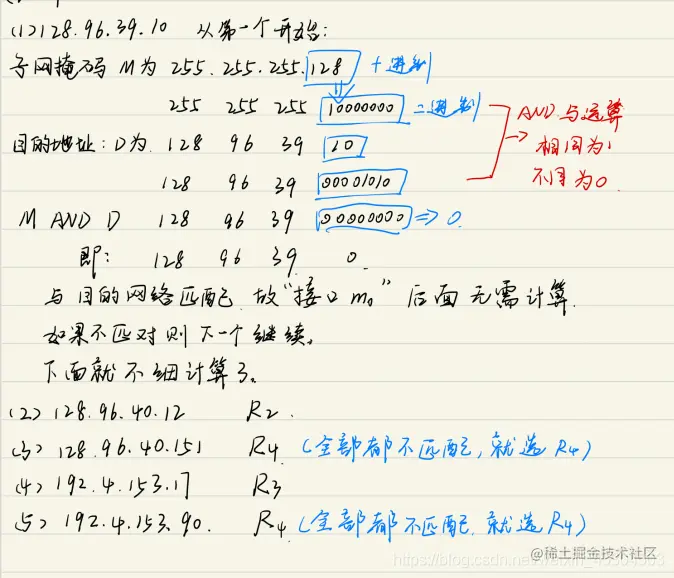 (1)128.96.39.10 从第一个开始:
子网掩码 M为 255.255.255.128 十进制
255 255 255 10000000 二进制
AND 与运算
相同为1
不同为0.
目的地址:D为. 128 96 39 10
128 96 39 00001010
M AND D 128 96 39 00000000 ⇒ 0.
即: 128 96 39 0.
与目的网络匹配.故“接口m₀”后面无需计算.
如果不匹对则下一个继续。
下面就不细计算了。
(2)128.96.40.12 R2.
(3)128.96.40.151 R4 (全部都不匹配,就选R4)
(4)192.4.153.17 R3
(5)192.4.153.90. R4 (全部都不匹配.就选R4)
@稀土掘金技术社区